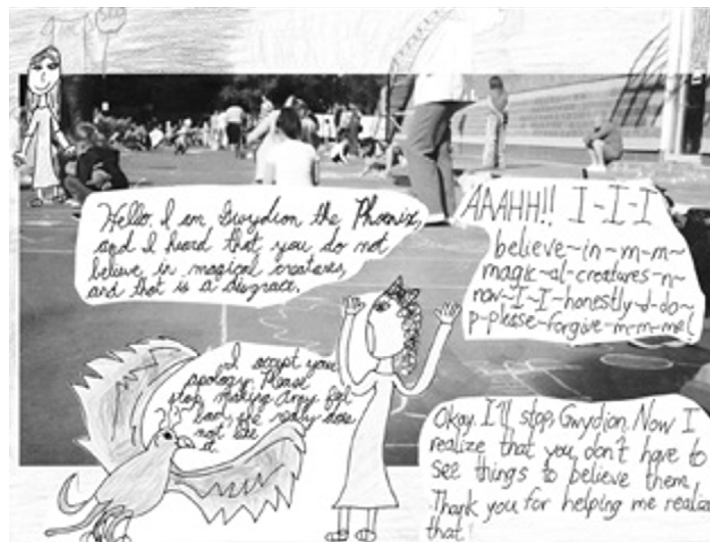 Hello. I am Gwydion the Phoenix,
and I heard that you do not
believe in magical creatures,
and that is a disgrace.
AAAHH!! I-I-I
believe~in~m~m~
magic~al~creatures~n~
now~I~I~honestly~d~do~
p~please~forgive~m~m~me!
I accept your
apology. Please
stop making Amy feel
bad, she really does
not like
it.
Okay. I'll stop, Gwydion. Now I
realize that you don't have to
see things to believe them.
Thank you for helping me realize
that.